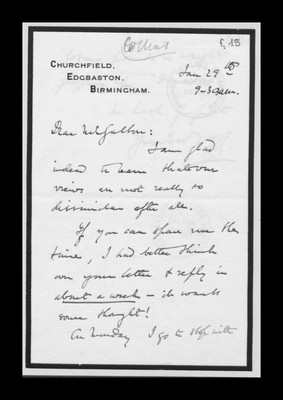 Collins
p. 15
CHURCHFIELD,
EDGBASTON,
BIRMINGHAM.
Jan 29th
9-30 a.m.
Dear McGallum:
I am glad
indeed to learn that our
views are not really so
dissimilar after all.
If you can spare me the
time, I had better think
over your letter & reply in
about a week – it wants
some thought!
On Monday I go to stop with